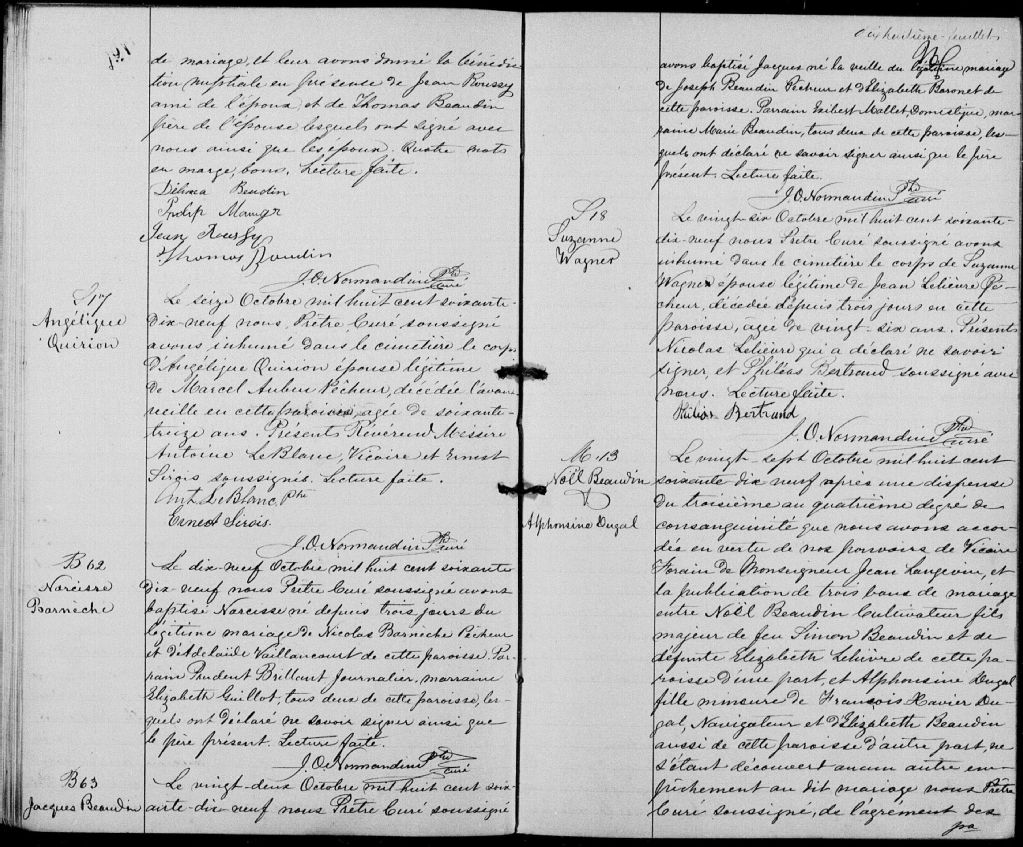 de mariage, et leur avons donné la bénédic-
tion nuptiale en présence de Jean Roussy
ami de l'époux et de Thomas Beaudin
père de l'épouse lesquels ont signé avec
nous ainsi que les époux. Quatre mots
en marge, bons. Lecture faite.
Délima Beudin
Jean Roussy
Thomas Boudin
J. O. Normandin Ptre
curé
S 17
Angélique
Quirion
Le seize Octobre mil huit cent soixante-
dix-neuf nous, Prêtre Curé soussigné
avons inhumé dans le cimetière le corps
d'Angélique Quirion épouse légitime
de Marcel Aubin Pêcheur, décédée l'avant
veille en cette paroisse, agée de soixante-
treize ans. Présents Révérend Messire
Antoine LeBlanc, Vicaire et Ernest
Sirois soussignés. Lecture faite.
Ant. LeBlanc, Ptre
Ernest Sirois
J. O. Normandin Ptre
curé
B 62
Narcisse
Barnèche
Le dix-neuf Octobre mil huit cent soixante
dix-neuf nous Prêtre Curé soussigné avons
baptisé Narcisse né depuis trois jours du
légitime mariage de Nicolas Barnèche Pêcheur
et d'Adelaïde Vaillancourt de cette paroisse. Par-
rain Prudent Brillant Journalier, marraine
Elizabeth Guillot, tous deux de cette paroisse, les-
quels ont déclaré ne savoir signer ainsi que
le père présent. Lecture faite.
J. O. Normandin Ptre
curé
B 63
Jacques Beaudin
Le vingt-deux Octobre mil huit cent soix-
ante-dix-neuf nous Prêtre Curé soussigné
dix huitième feuillet
avons baptisé Jacques né la veille du légitime mariage
de Joseph Beaudin Pêcheur et d'Elizabeth Baronet de
cette paroisse. Parrain Mallet, Domestique, mar-
raine Marie Beaudin, tous deux de cette paroisse, les-
quels ont déclaré ne savoir signer ainsi que le père
présent. Lecture faite.
J. O. Normandin Ptre
curé
S 18
Suzanne
Wagner
Le vingt-six Octobre mil huit cent soixante-
dix-neuf nous Prêtre Curé soussigné avons
inhumé dans le cimetière le corps de Suzanne
Wagner épouse légitime de Jean Lelièvre Pê-
cheur, décédée depuis trois jours en cette
paroisse, agée de vingt-six ans. Présents
Nicolas Lelièvre qui a déclaré ne savoir
signer, et Philéas Bertrand soussigné avec
nous. Lecture faite.
Philias Bertrand
J. O. Normandin Ptre
curé
M. 13
Noël Beaudin
&
Alphonsine Dugal
Le vingt-sept Octobre mil huit cent
soixante dix neuf après une dispense
du troisième au quatrième degré de
consanguinité que nous avons accor-
dée en vertu de nos pouvoirs de Vicaire
Forain de Monseigneur Jean Langevin, et
la publication de trois bans de mariage
entre Noël Beaudin Cultivateur fils
majeur de feu Simon Beaudin et de
défunte Elizabeth Lelièvre de cette pa-
roisse d'une part, et Alphonsine Dugal
fille mineure de François Xavier Du-
gal, Navigateur et d'Elizabeth Beaudin
aussi de cette paroisse d'autre part, ne
s'étant découvert aucun autre em-
pêchement au dit mariage nous Prêtre
Curé soussigné, de l'agrément des
pa